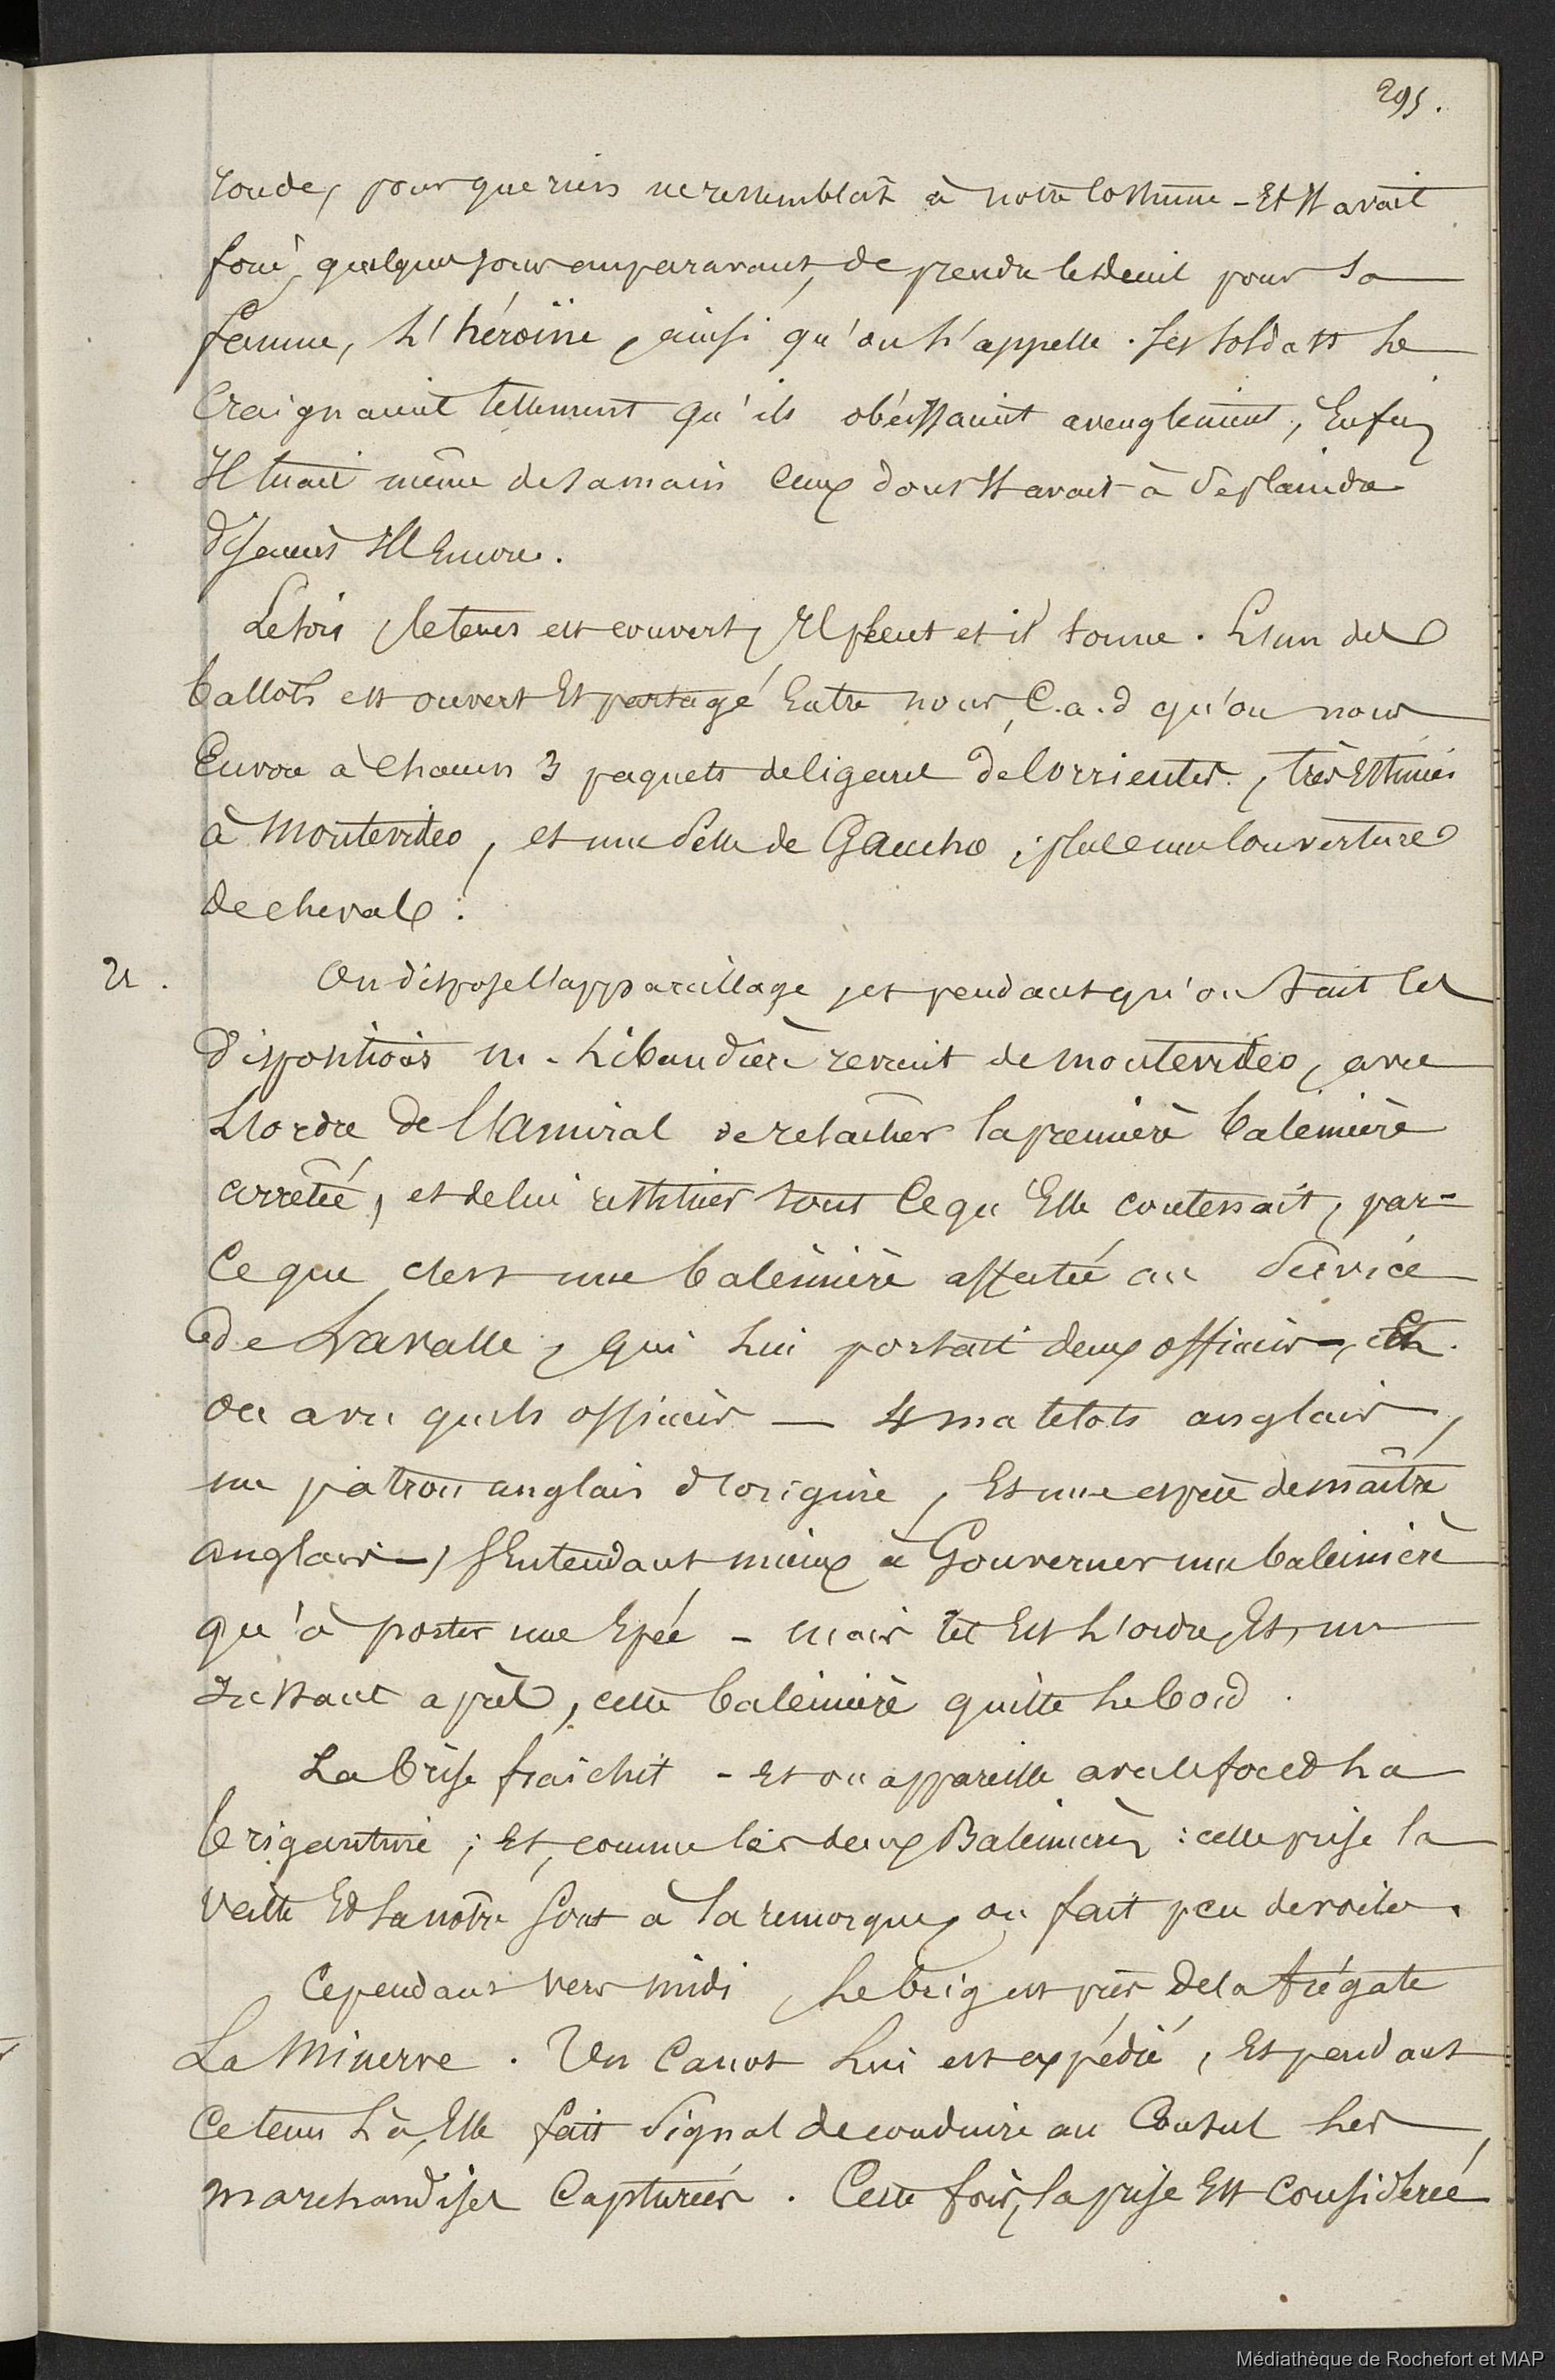 295.
ronde, pour que rien ne ressemblât à notre costume - Et il avait
forcé, quelques jours auparavant, de prendre le deuil pour sa
femme, l'héroïne, ainsi qu'on l'appelle. Ses soldats le
craignaient tellement qu'ils obéissaient aveuglement, Enfin
Il tuait même de sa main ceux dont Il avait à se plaindre
Il Encore.
Le soir, le tems est couvert, Il pleut et il tonne. L'un des
ballots est ouvert Et partagé Entre nous, C.a.d qu'on nous
Envoie à chacun 3 paquets de cigares de Corrientes, très Estimés
à Montevideo, et une selle de Gaucho, plus une couverture
de cheval.
21. On dispose l'appareillage, et pendant qu'on fait les
dispositions M. Libaudière revient de Montevideo, avec
L'ordre de l'Amiral de relacher la première baleinière
arretée, et de lui restituer tout ce qu'Elle contenait, par-
Ce que c'est une baleinière affectée au Service
de Lavalle, qui lui portait deux officiers, Eh
on a vu quels officiers — 4 matelots anglais,
un patron anglais d'origine, Et une espèce de maître
anglais —, s'Entendant mieux à Gouverner une baleinière
qu'à porter une Epée - mais tel Est l'ordre, Et, un
Instant après, cette baleinière quitte le bord.
La brise fraichit - Et on appareille avec le foc Et la
brigantine ; Et, comme les deux Baleinières : celle prise la
veille Et la nôtre sont à la remorque, on fait peu de voiles.
Cependant vers midi, le brig est près de la frégate
La Minerve. Un Canot lui est expédié, Et pendant
ce tems là, Elle fait signal de conduire au Consul les
marchandises Capturées. Cette fois, la prise Est considérée
Médiathèque de Rochefort et MAP